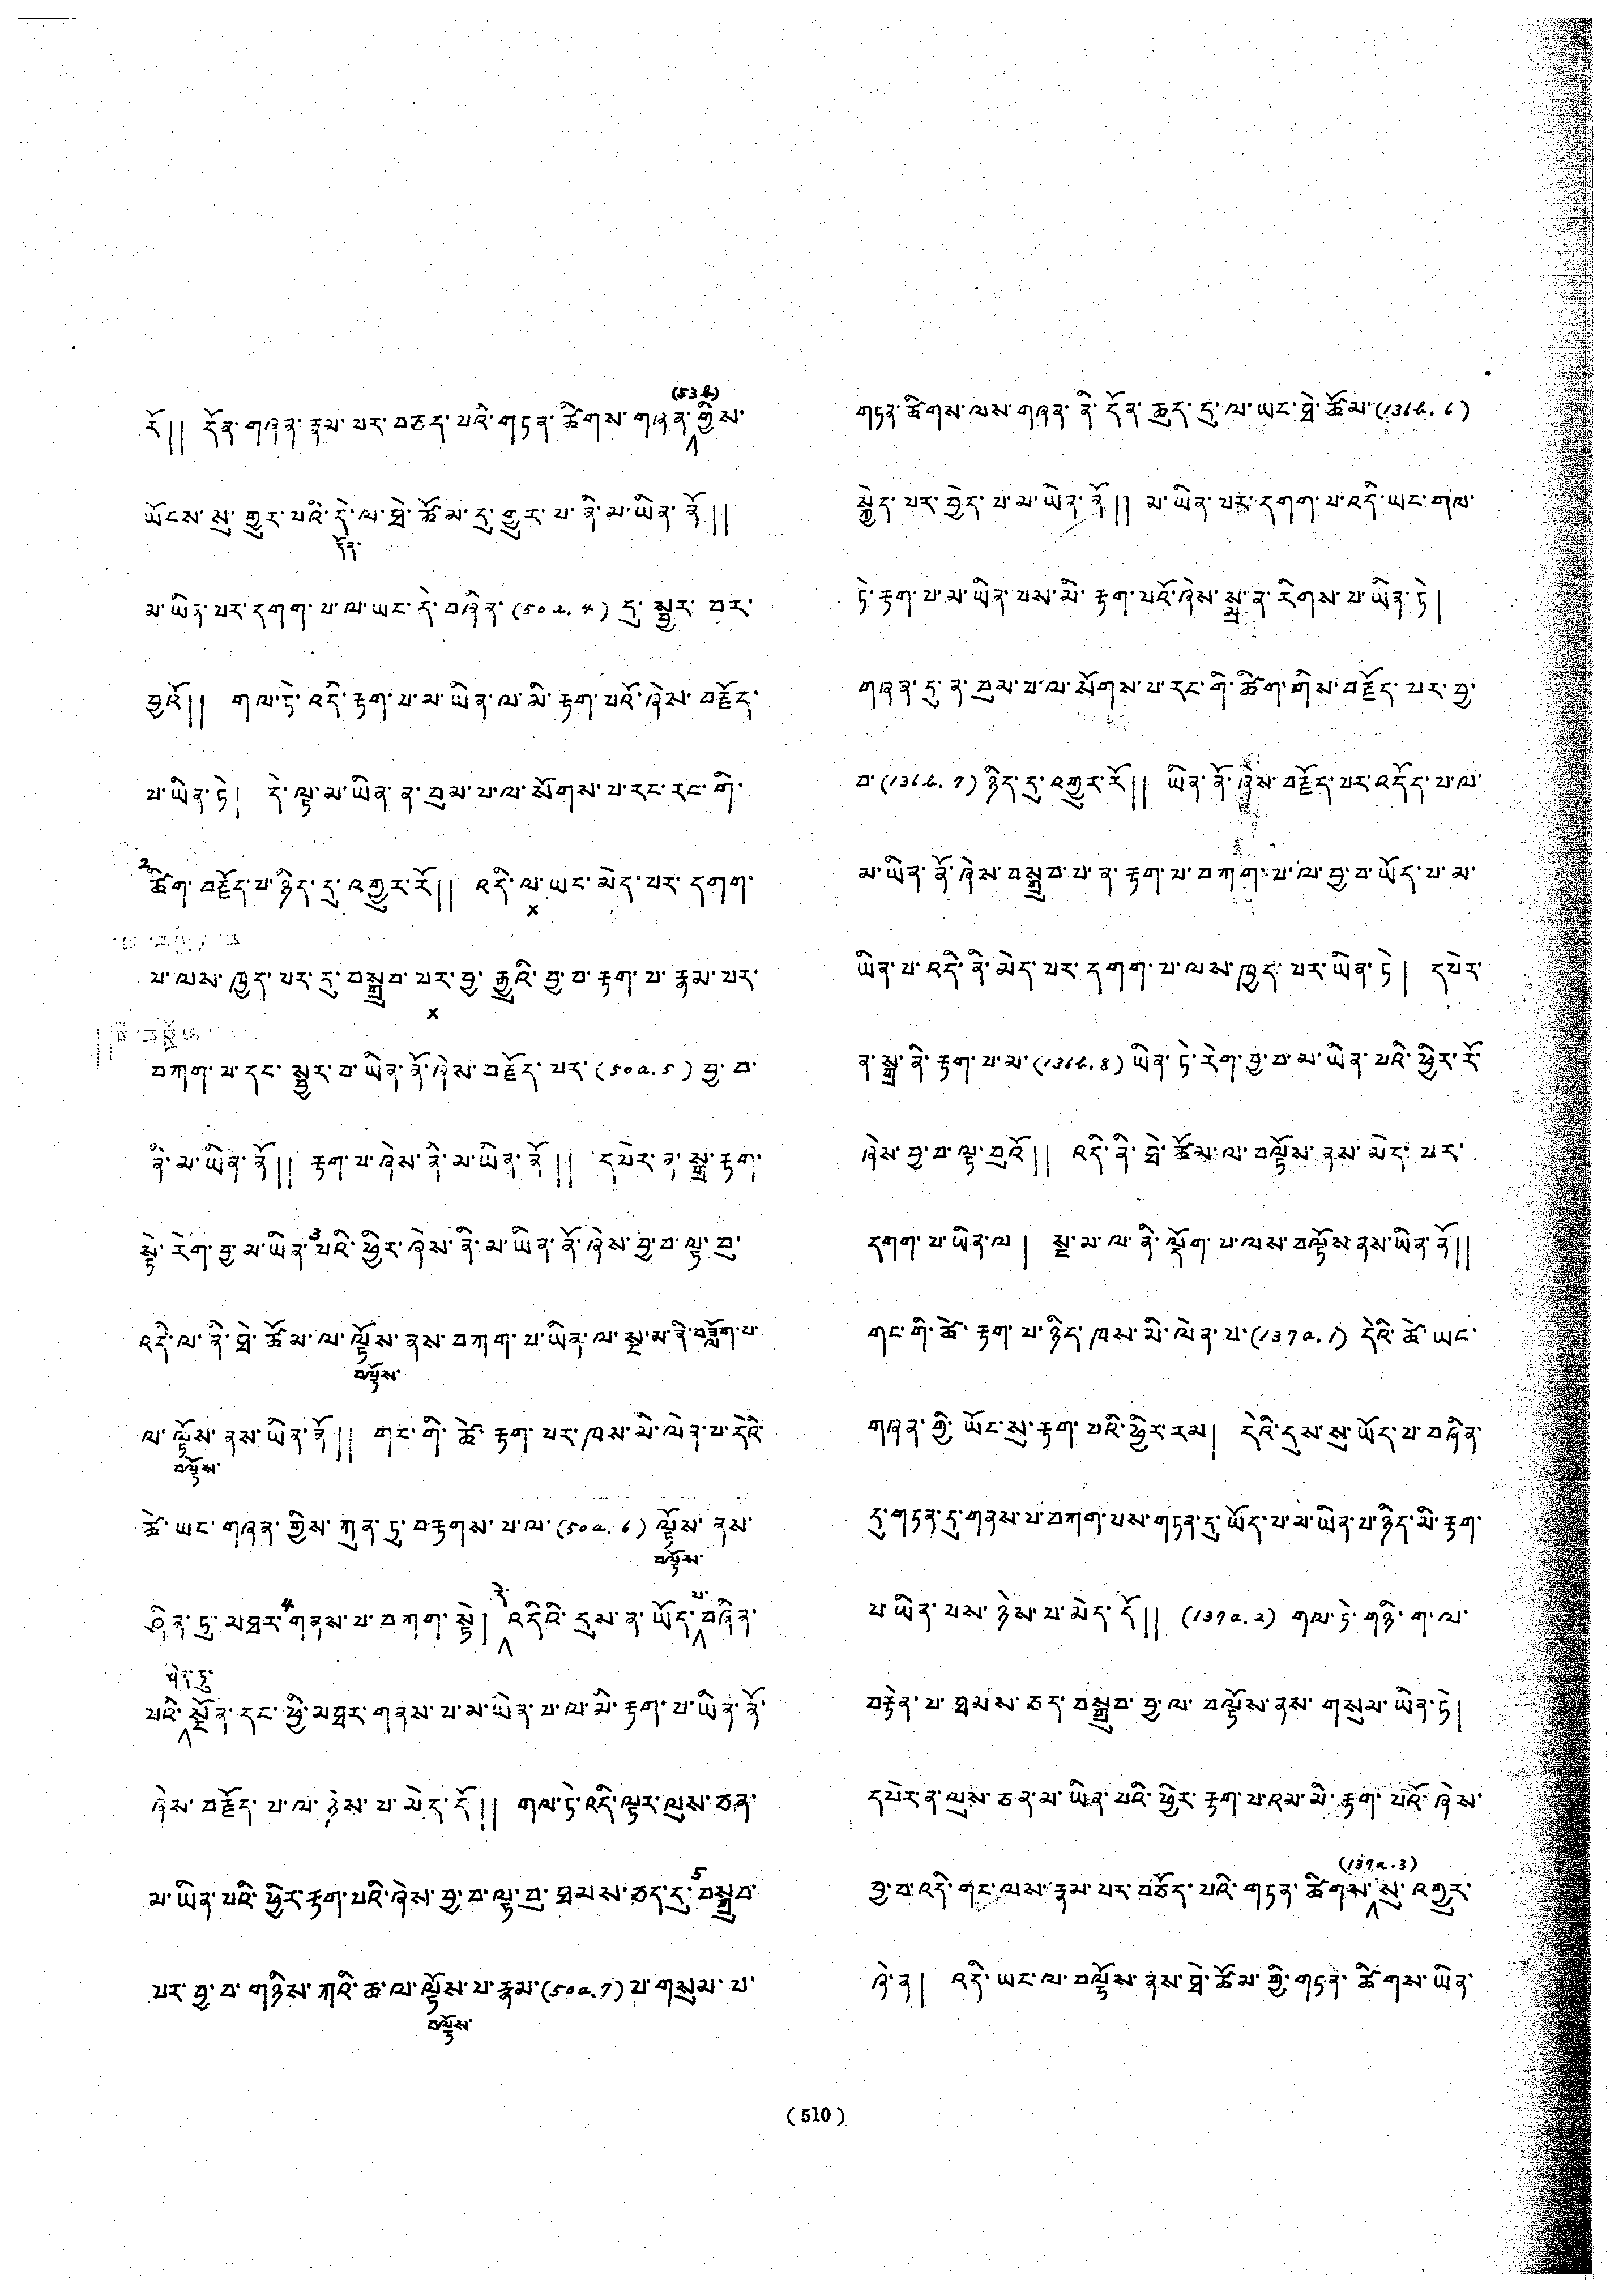 (53b)
རོ།། དོན་གཞན་རྣམ་པར་བཅད་པའི་གཏན་ཚིགས་གཞན་གྱིས་
ཡོངས་སུ་གྱུར་པའི་དེ་ལ་ཐེ་ཚོམ་དུ་གྱུར་པ་ནི་མ་ཡིན་ནོ།།
དོན་
མ་ཡིན་པར་དགག་པ་ལ་ཡང་དེ་བཞིན་(50a.4) དུ་སྦྱར་བར་
བྱའོ།། གལ་ཏེ་འདི་རྟག་པ་མ་ཡིན་ལ་མི་རྟག་པའོ་ཞེས་བརྗོད་
པ་ཡིན་ཏེ། དེ་ལྟ་མ་ཡིན་ན་བུམ་པ་ལ་སོགས་པ་རང་རང་གི་
2ཚིག་བརྗོད་པ་ཉིད་དུ་འགྱུར་རོ།། འདི་ལ་ཡང་མེད་པར་དགག་
x
པ་ལས་ཁྱད་པར་དུ་བསྒྲུབ་པར་བྱ་རྒྱུའི་བྱ་བ་རྟག་པ་རྣམ་པར་
x
བཀག་པ་དང་སྦྱར་བ་ཡིན་ནོ་ཞེས་བརྗོད་པར་(50a.5) བྱ་བ་
ནི་མ་ཡིན་ནོ།། རྟག་པ་ཞེས་ནི་མ་ཡིན་ནོ།། དཔེར་ན་སྒྲ་རྟག་
སྟེ་རེག་བྱ་མ་ཡིན་3པའི་ཕྱིར་ཞེས་ནི་མ་ཡིན་ནོ་ཞེས་བྱ་བ་ལྟ་བུ་
འདི་ལ་ནི་ཐེ་ཚོམ་ལ་ལྟོས་ནས་བཀག་པ་ཡིན་ལ་སྔ་མ་ནི་བཟློག་པ་
བལྟོས་
ལ་ལྟོས་ནས་ཡིན་ནོ།། གང་གི་ཚེ་རྟག་པར་ཁས་མི་ལེན་པ་དེའི་
བལྟོས་
ཚེ་ཡང་གཞན་གྱིས་ཀུན་ཏུ་བརྟགས་པ་ལ་(50a.6) ལྟོས་ནས་
བལྟོས་
ཤིན་ཏུ་མཐར་4གནས་པ་བཀག་སྟེ། འདིའི་དུས་ན་ཡོད་བཞིན་
དེ་ པ་
པའི་སྔོན་དང་ཕྱི་མཐར་གནས་པ་མ་ཡིན་པ་ལ་མི་རྟག་པ་ཡིན་ནོ་
ཞེས་བརྗོད་པ་ལ་ཉེས་པ་མེད་དོ།། གལ་ཏེ་འདི་ལྟར་ལུས་ཅན་
མ་ཡིན་པའི་ཕྱིར་རྟག་པའི་ཞེས་བྱ་བ་ལྟ་བུ་ཐམས་ཅད་དུ་5བསྒྲུབ་
པར་བྱ་བ་གཉིས་ཀའི་ཆ་ལ་ལྟོས་པ་རྣམ་(50a.7) པ་གསུམ་པ་
བལྟོས་
གཏན་ཚིགས་ལས་གཞན་ནི་དོན་ཆུད་དུ་ལ་ཡང་ཐེ་ཚོམ་(136b.6)
སྐྱེད་པར་བྱེད་པ་མ་ཡིན་ནོ།། མ་ཡིན་པར་དགག་པ་འདི་ཡང་གལ་
ཏེ་རྟག་པ་མ་ཡིན་པས་མི་རྟག་པའོ་ཞེས་སྨྲ་ན་རིགས་པ་ཡིན་ཏེ།
གཞན་དུ་ན་བུམ་པ་ལ་སོགས་པ་རང་གི་ཚིག་གིས་བརྗོད་པར་བྱ་
བ་(136b.7) ཉིད་དུ་འགྱུར་རོ།། ཡིན་ནོ་ཞེས་བརྗོད་པར་འདོད་པ་ལ་
མ་ཡིན་ནོ་ཞེས་བསྒྲུབ་པ་ན་རྟག་པ་བཀག་པ་ལ་བྱ་བ་ཡོད་པ་མ་
ཡིན་པ་འདི་ནི་མེད་པར་དགག་པ་ལས་ཁྱད་པར་ཡིན་ཏེ། དཔེར་
ན་སྒྲ་ནི་རྟག་པ་མ་(136b.8) ཡིན་ཏེ་རེག་བྱ་བ་མ་ཡིན་པའི་ཕྱིར་རོ་
ཞེས་བྱ་བ་ལྟ་བུའོ།། འདི་ནི་ཐེ་ཚོམ་ལ་བལྟོས་ནས་མེད་པར་
དགག་པ་ཡིན་ལ། སྔ་མ་ལ་ནི་ལྡོག་པ་ལས་བལྟོས་ནས་ཡིན་ནོ།།
གང་གི་ཚེ་རྟག་པ་ཉིད་ཁས་མི་ལེན་པ་(137a.1) དེའི་ཚེ་ཡང་
གཞན་གྱི་ཡོང་སུ་རྟག་པའི་ཕྱིར་རམ། དེའི་དུས་སུ་ཡོད་པ་བཞིན་
དུ་གཏན་དུ་གནས་པ་བཀག་པས་གཏན་དུ་ཡོད་པ་མ་ཡིན་པ་ཉིད་མི་རྟག་
པ་ཡིན་པས་ཉེས་པ་མེད་དོ།། (137a.2) གལ་ཏེ་གཉི་ག་ལ་
བརྟེན་པ་ཐམས་ཅད་བསྒྲུབ་བྱ་ལ་བལྟོས་ནས་གསུམ་ཡིན་ཏེ།
དཔེར་ན་ལུས་ཅན་མ་ཡིན་པའི་ཕྱིར་རྟག་པ་འམ་མི་རྟག་པའོ་ཞེས་
(137a.3)
བྱ་བ་འདི་གང་ལས་རྣམ་པར་བཅོད་པའི་གཏན་ཚིགས་སུ་འགྱུར་
ཞེ་ན། འདི་ཡང་ལ་བལྟོས་ནས་ཐེ་ཚོམ་གྱི་གཏན་ཚིགས་ཡིན་
(510)